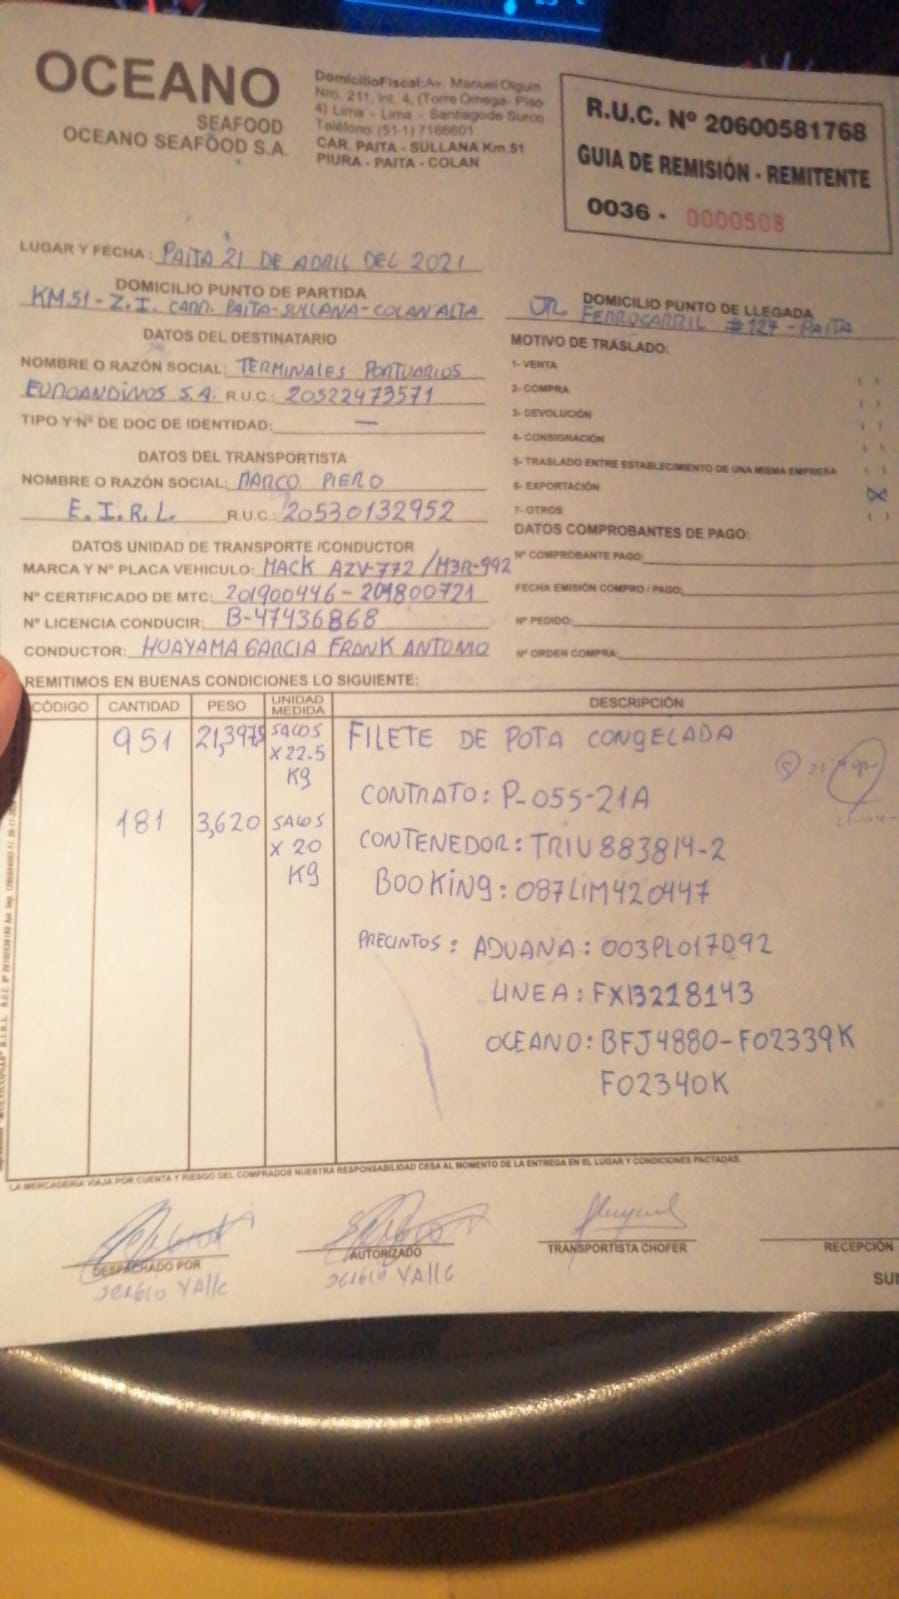 OCEANO
SEAFOOD
OCEANO SEAFOOD S.A.
DomicilioFiscal:Av. Manuel Olguin
Nro. 211, Int. 4, (Torre Omega- Piso
4) Lima - Lima - Santiagode Surco
Teléfono:(51-1) 7166601
CAR. PAITA - SULLANA Km.51
PIURA - PAITA - COLAN
R.U.C. Nº 20600581768
GUIA DE REMISIÓN - REMITENTE
0036 - 0000508
LUGAR Y FECHA: PAITA 21 DE ABRIL DEL 2021
DOMICILIO PUNTO DE PARTIDA
KM 51 - Z.I. CARR. PAITA-SULLANA-COLAN ALTA
DOMICILIO PUNTO DE LLEGADA
JR. FERROCARRIL #127 - PAITA
DATOS DEL DESTINATARIO
NOMBRE O RAZÓN SOCIAL: TERMINALES PORTUARIOS
EUROANDINOS S.A. R.U.C.: 20522473571
TIPO Y Nº DE DOC DE IDENTIDAD: —
MOTIVO DE TRASLADO:
1- VENTA ( )
2- COMPRA ( )
3- DEVOLUCIÓN ( )
4- CONSIGNACIÓN ( )
5- TRASLADO ENTRE ESTABLECIMIENTO DE UNA MISMA EMPRESA ( )
6- EXPORTACIÓN (X)
7- OTROS ( )
DATOS DEL TRANSPORTISTA
NOMBRE O RAZÓN SOCIAL: MARCO PIERO
E.I.R.L. R.U.C: 20530132952
DATOS UNIDAD DE TRANSPORTE /CONDUCTOR
MARCA Y Nº PLACA VEHICULO: MACK AZV-772 / M3R-992
Nº CERTIFICADO DE MTC: 201900446 - 201800721
Nº LICENCIA CONDUCIR: B-47436868
CONDUCTOR: HUAYAMA GARCIA FRANK ANTONIO
DATOS COMPROBANTES DE PAGO:
Nº COMPROBANTE PAGO:
FECHA EMISIÓN COMPRO / PAGO:
Nº PEDIDO:
Nº ORDEN COMPRA:
REMITIMOS EN BUENAS CONDICIONES LO SIGUIENTE:
CÓDIGO CANTIDAD PESO UNIDAD MEDIDA DESCRIPCIÓN
951 21,397.5 SACOS X 22.5 Kg FILETE DE POTA CONGELADA
CONTRATO: P-055-21A
181 3,620 SACOS X 20 Kg CONTENEDOR: TRIU 883814-2
BOOKING: 087LIM420447
PRECINTOS: ADUANA: 003PL017092
LINEA: FXI3218143
OCEANO: BFJ4880-F02339K
F02340K
LA MERCADERÍA VIAJA POR CUENTA Y RIESGO DEL COMPRADOS NUESTRA RESPONSABILIDAD CESA AL MOMENTO DE LA ENTREGA EN EL LUGAR Y CONDICIONES PACTADAS.
DESPACHADO POR
SERGIO VALLE
AUTORIZADO
SERGIO VALLE
TRANSPORTISTA CHOFER
RECEPCIÓN
SUN